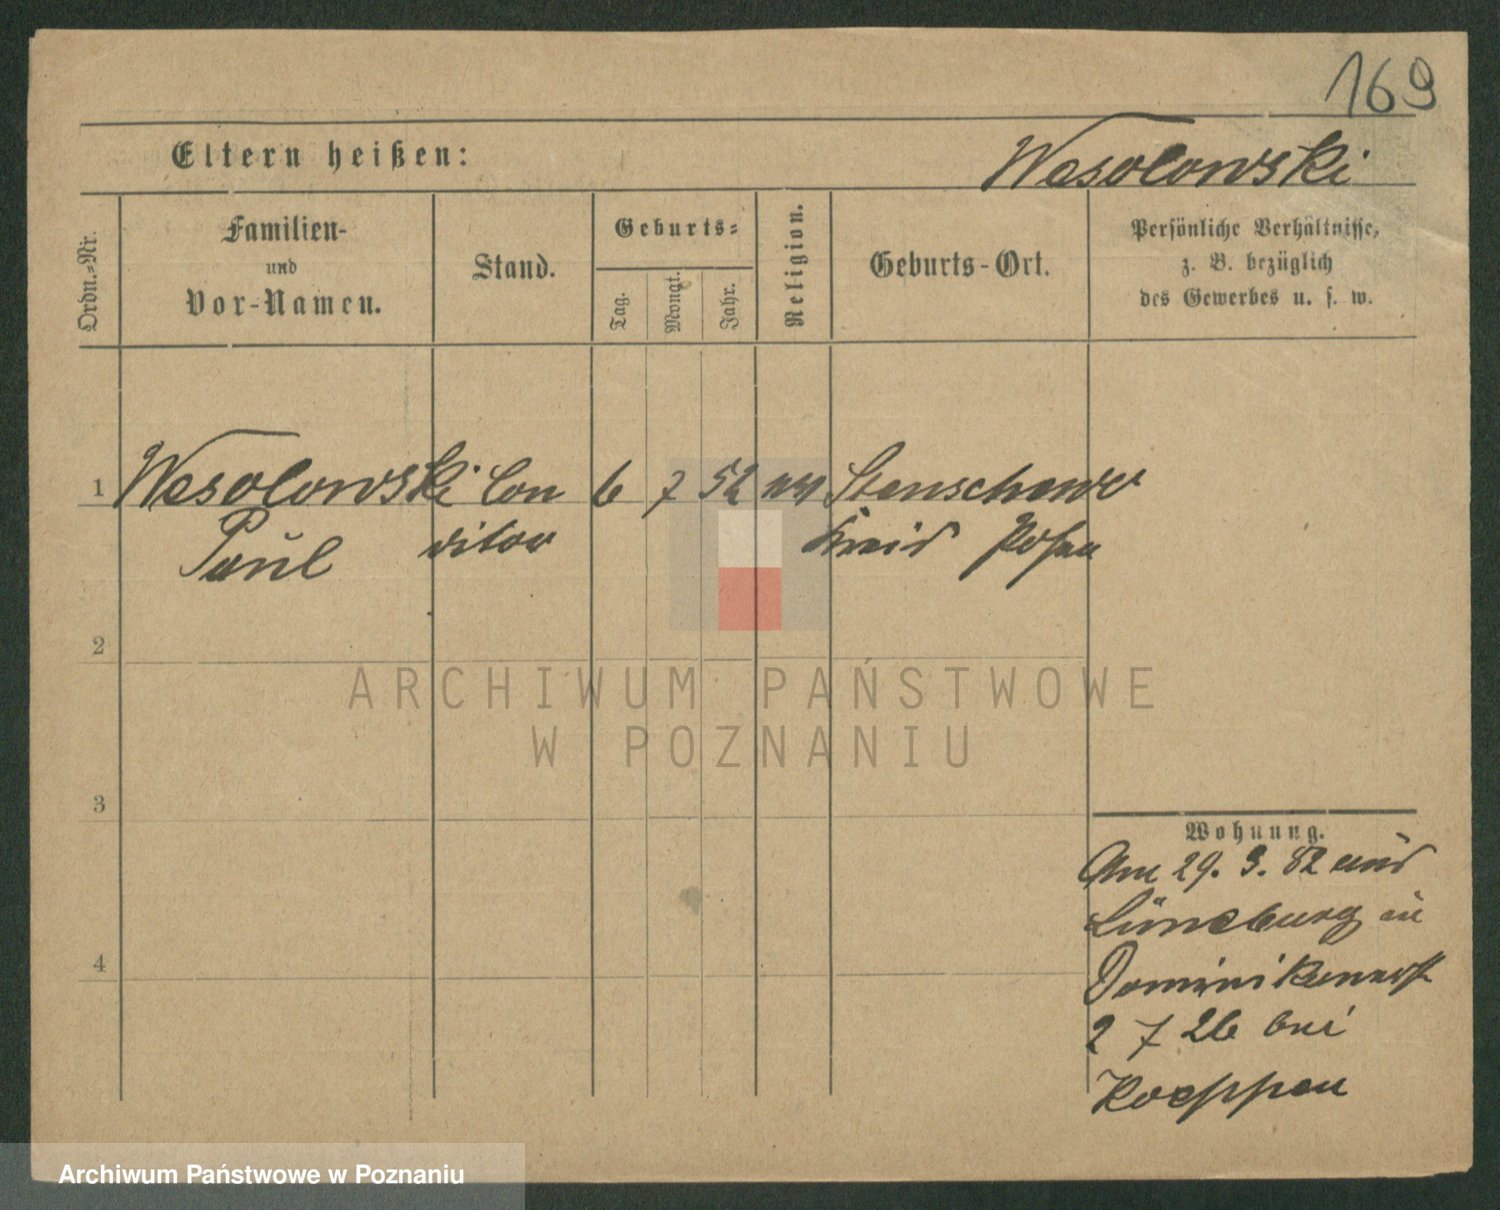 169
Eltern heißen:
Wesolowski
Ordn.-Nr.
Familien-
und
Vor-Namen.
Stand.
Geburts-
Tag.
Monat.
Jahr.
Religion.
Geburts-Ort.
Persönliche Verhältnisse,
z. B. bezüglich
des Gewerbes u. s. w.
1 Wesolowski Con 6 7 52 Stenschewo
Paul ditor Kreis Posen
2
3
4
Wohnung.
Am 29. 3. 82 aus
Lüneburg in
Dominikanerst
2 7 26 bei
Koeppen
ARCHIWUM PAŃSTWOWE
W POZNANIU
Archiwum Państwowe w Poznaniu